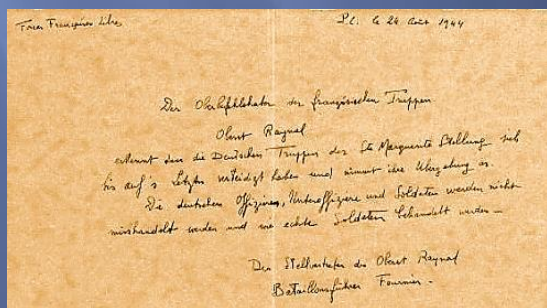 Forces Françaises Libres
P.C. le 24 Août 1944
Der Oberbefehlshaber der französischen Truppen
Oberst Raynal
erkennt dass die Deutschen Truppen der Ste Marguerite Stellung sich
bis auf's Letzte verteidigt haben und nimmt ihre Übergabung an.
Die deutschen Offiziere, Unteroffiziere und Soldaten werden nicht
misshandelt werden und wie echte Soldaten behandelt werden –
Der Stellvertreter des Oberst Raynal
Bataillonsführer Fournier.